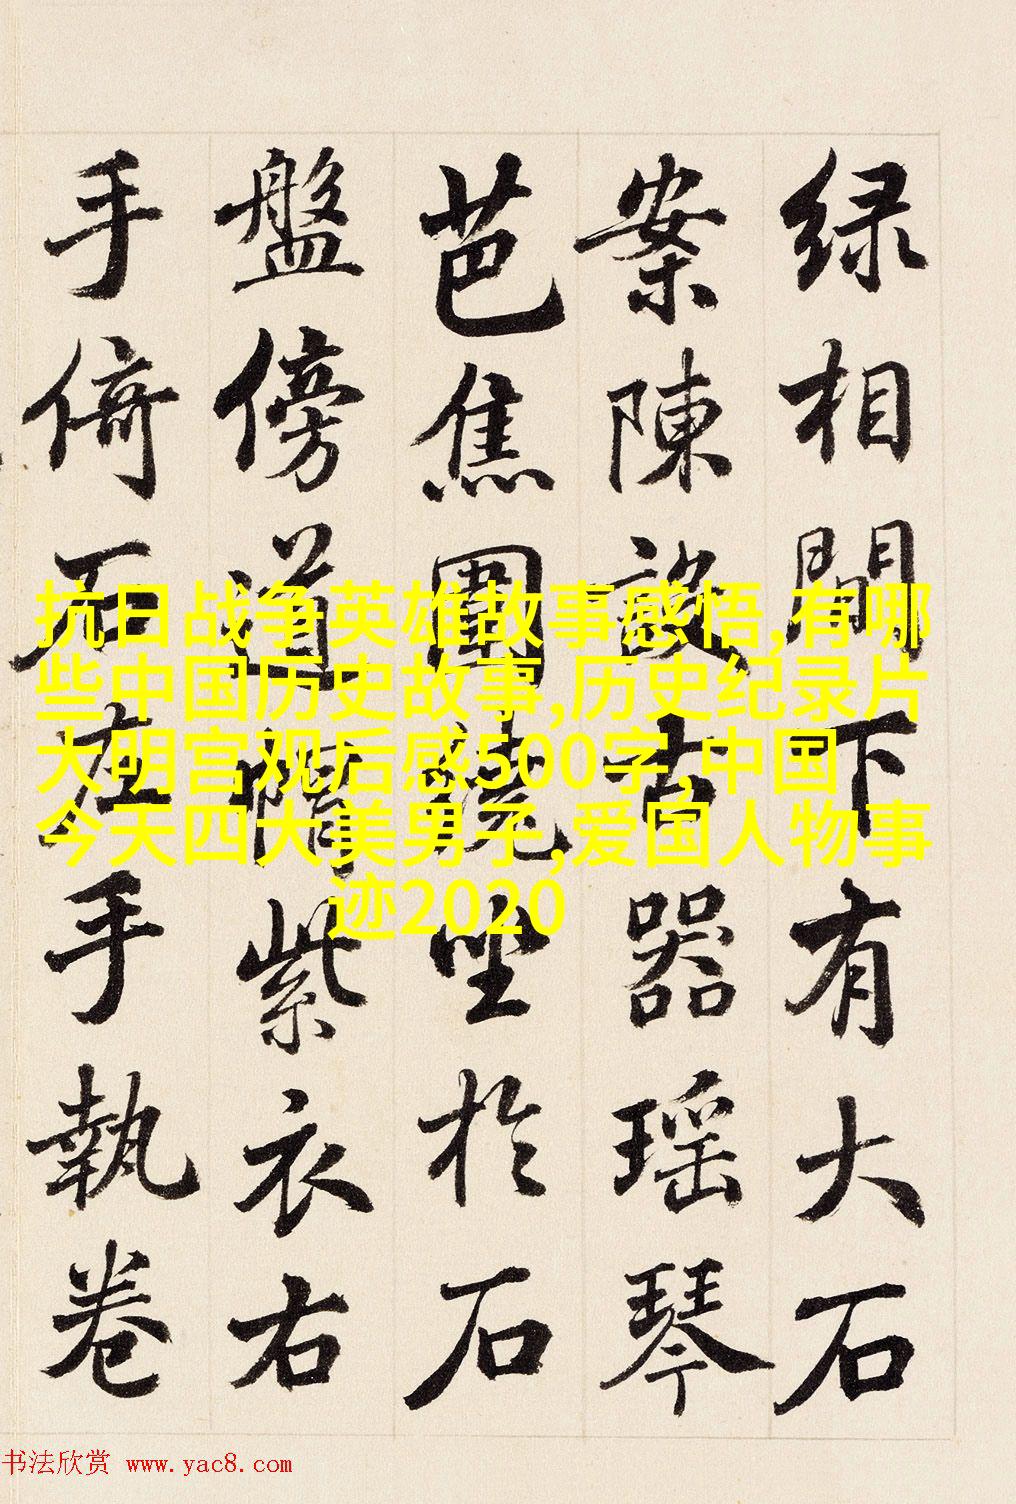 绿相間下有大石
案陳設古器瑶琴
芭焦圍繞坐於石
盤傍道帽紫衣右
手倚石左手執卷
抗日战争英雄故事感悟,有哪
些中国历史故事,历史纪录片
大明宫观后感500字,中国
今天四大美男子,爱国人物事
迹2020
书法欣赏 www.yac8.com